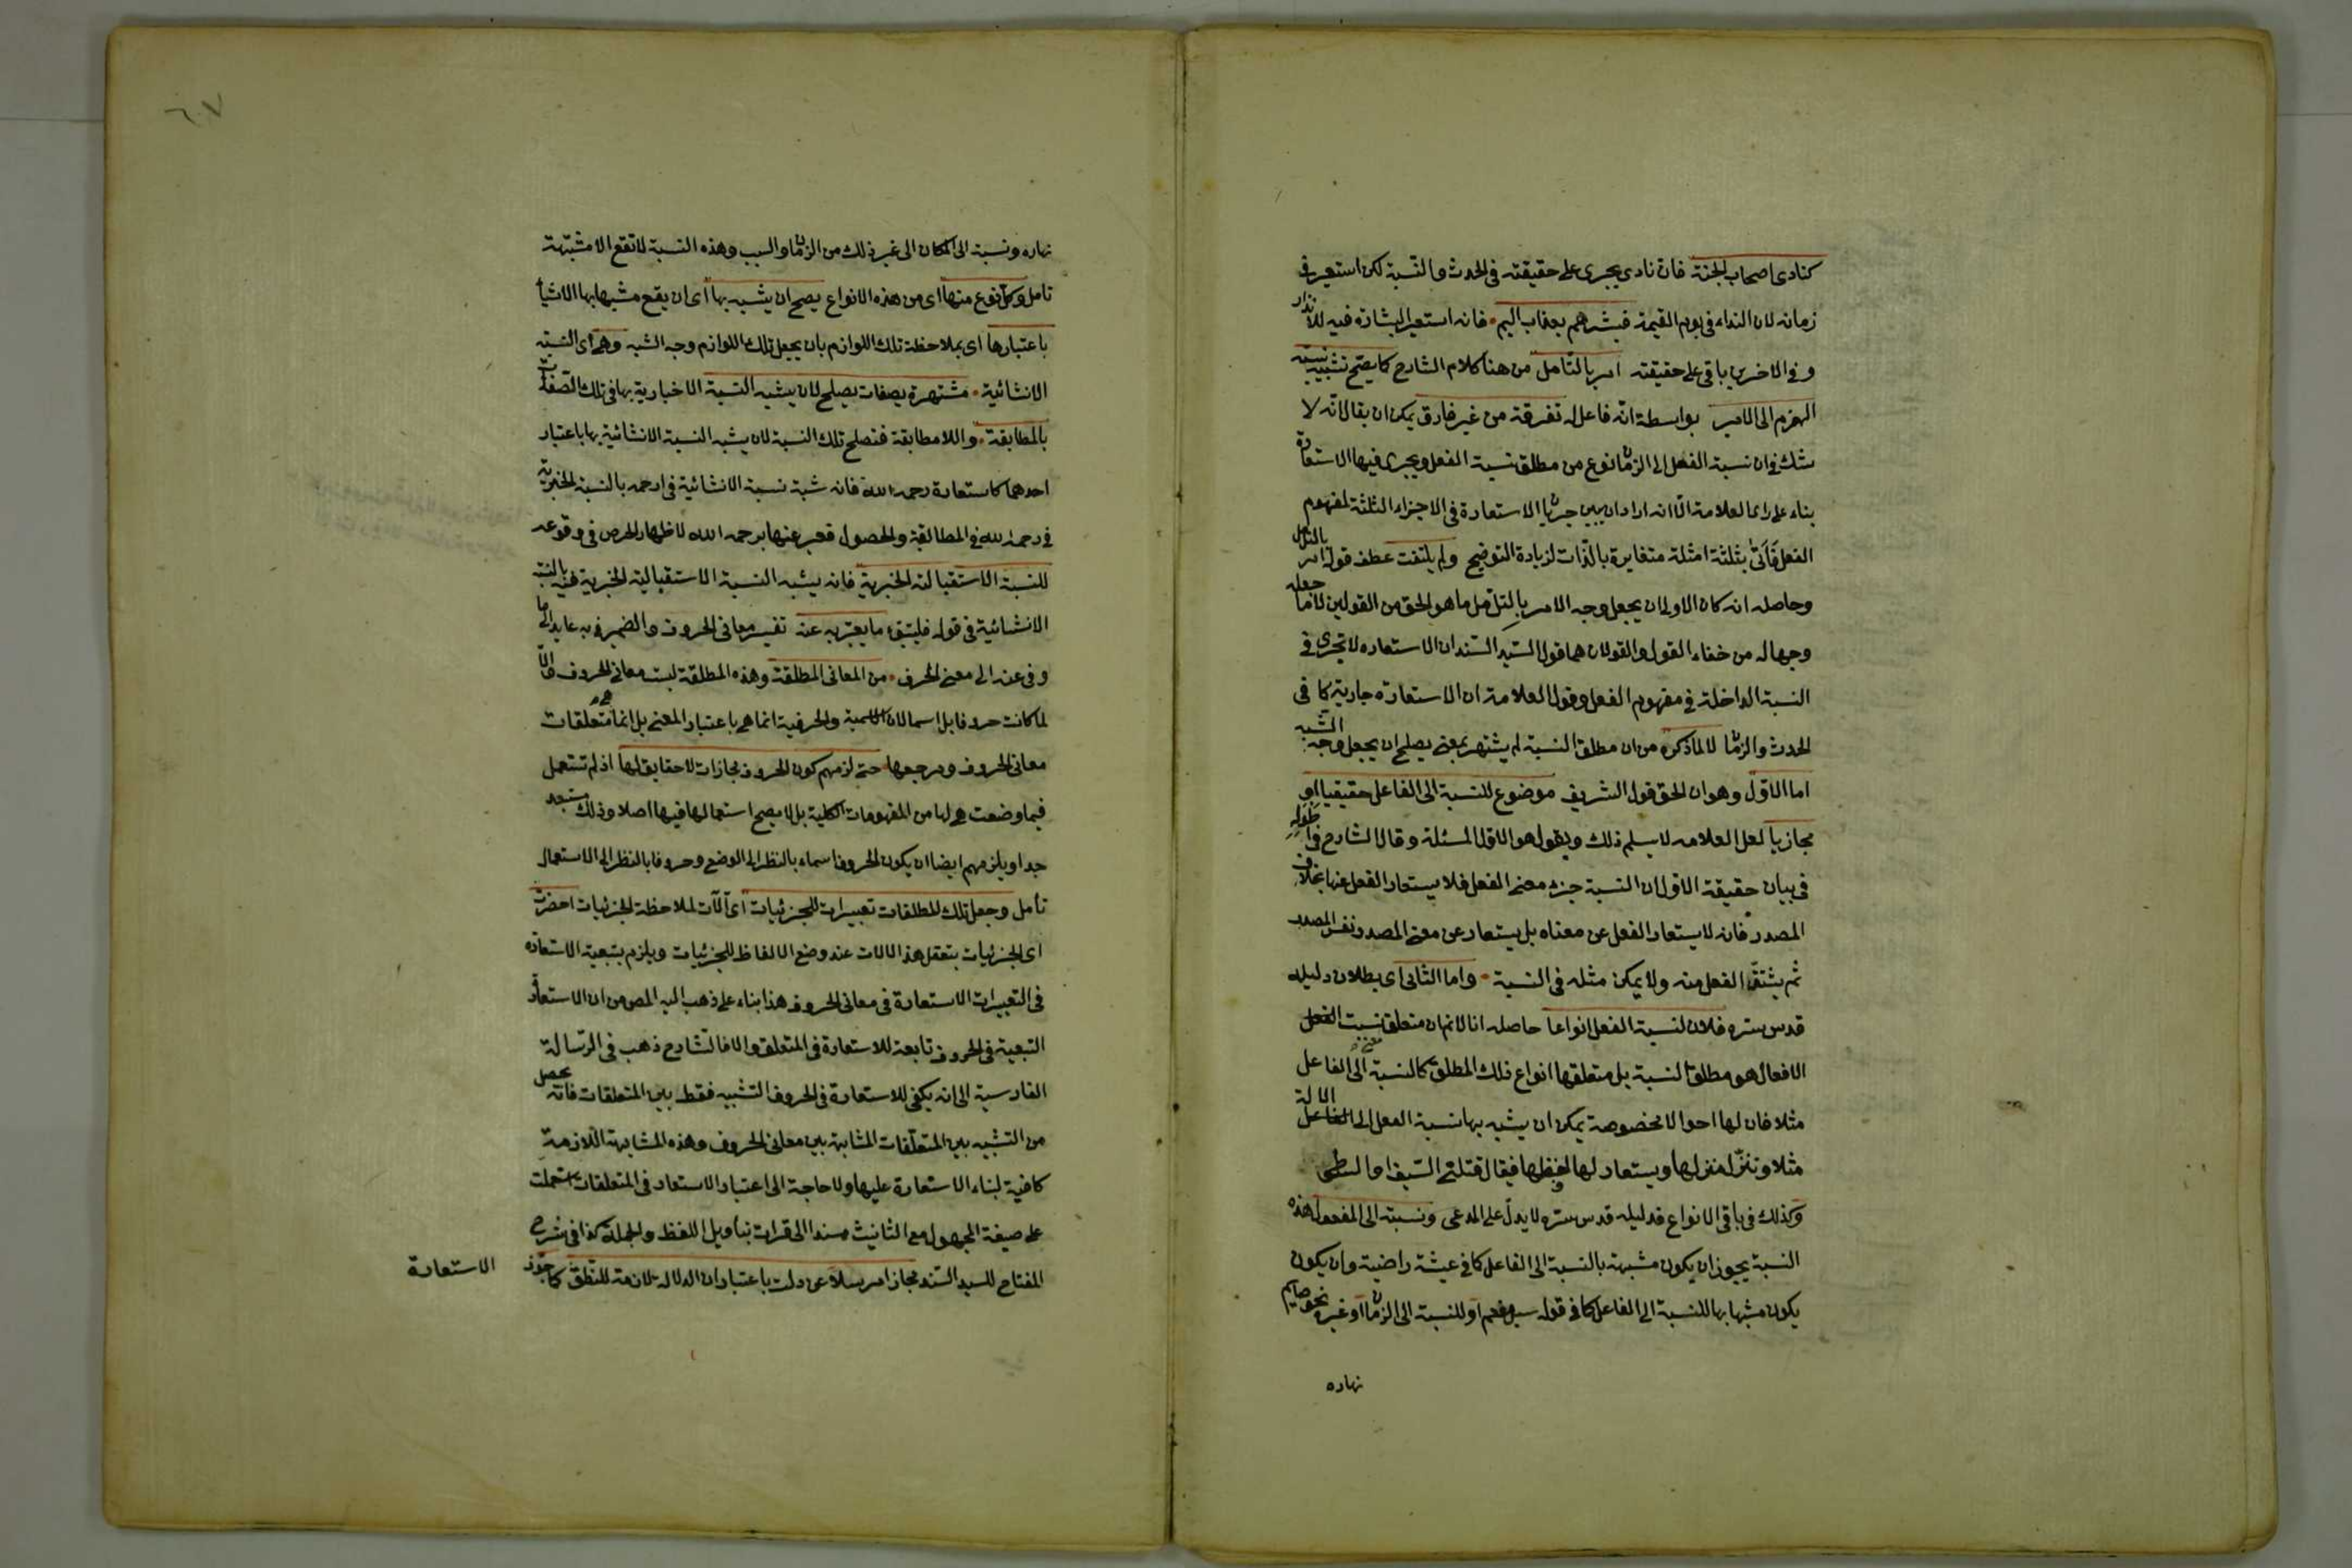 كنادى اصحاب الجنة فان نادى يجرى على حقيقته فى الحدث والنسبة لكن استعير فى
زمانه لان النداء فى يوم القيمة فبشرهم بعذاب اليم فانه استعير البشارة فيه للانذار
وفى الاخرين باقى على حقيقته امر بالتامل من هنا كلام الشارح كما يصح تشبيه نسبة
الهزم الى الامير بواسطة انه فاعل له تفرقة من غير فارق يمكن ان يقال انه لا
شك فى ان نسبة الفعل الى الزمان نوع من مطلق نسبة الفعل ويجرى فيها الاستعارة
بناء على راى العلامة الا انه اراد ان يبين جريان الاستعارة فى الاجزاء الثلثة لمفهوم
الفعل فاتى بثلثة امثلة متغايرة بالذات لزيادة التوضيح ولم يلتفت عطف قوله امر بالتامل
وحاصله انه كان الاولى ان يجعل وجه الامر بالتامل ما هو الحق من القولين لا ما جعله
وجها له من خفاء القول والقولان هما قول السيد السند ان الاستعاره لا تجرى فى
النسبة الداخلة فى مفهوم الفعل وقول العلامة ان الاستعارة جارية كما فى
الحدث والزمان لا لما ذكره من ان مطلق النسبة لم يشتهر بمعنى يصلح ان يجعل وجه الشبه
اما الاول وهو ان الحق قول الشريف موضوع للنسبة الى الفاعل حقيقيا او
مجازيا لعل العلامه لا يسلم ذلك ويقول هو الاول المسئلة وقال الشارح فى
فى بيان حقيقة الاول ان النسبة جزء معنى الفعل فلا يستعار الفعل عنها بخلاف
المصدر فانه لا يستعار الفعل عن معناه بل يستعار عن معنى المصدر نفس المصدر
ثم يشتق الفعل منه ولا يمكن مثله فى النسبة واما الثانى اى بطلان دليله
قدس سره فلان لنسبة الفعل انواعا حاصله انا لا نم ان متعلق نسبت الفعل
الافعال هو مطلق النسبة بل متعلقها انواع ذلك المطلق كالنسبة الى الفاعل
مثلا فان لها احوالا مخصوصة يمكن ان يشبه بها نسبة الفعل الى الفاعل الالة
مثلا وتنزل منزلها ويستعار لها لفظها فيقال قتلنى السيف او السطى
وكذلك فى باقى الانواع فدليله قدس سره لا يدل على المدعى ونسبته الى المفعول هذه
النسبة يجوز ان يكون مشبهة بالنسبة الى الفاعل كما فى عيشة راضية وان يكون
يكون مشبها بها للنسبة الى الفاعل كما فى قوله سيل مفعم او للنسبة الى الزمان او غيره نحو صايم
نهاره
٦٧
نهاره ونسبة الى المكان الى غير ذلك من الزمان والسبب وهذه النسبة لا تقع الا مشبهة
تامل وكل نوع منها اى من هذه الانواع يصح ان يشبه بها اى ان يقع مشبها بها الاشياء
باعتبارها اى بملاحظة تلك اللوازم بان يجعل تلك اللوازم وجه الشبه وهى اى النسبة
الانشائية مشتهرة بصفات يصلح لان يشبه النسبة الاخبارية بها فى تلك الصفات
بالمطابقة واللا مطابقة فتصلح تلك النسبة لان يشبه النسبة الانشائية بها باعتبار
احدهما كاستعارة رحمه الله فانه شبه نسبة الانشائية فى ارحمه بالنسبة الخبرية
فى رحمه الله فى المطابقة والحصول فعبر عنها برحمه الله لاظهار الحرص فى وقوعه
للنسبة الاستقبالية الخبرية فانه يشبه النسبة الاستقبالية الخبرية فيه بالنسبة
الانشائية فى قوله فليتبوء ما يعبر به عنه تفسير معانى الحروف والضمير فى به عايد الى ما
وفى عنه الى معنى الحرف من المعانى المطلقة وهذه المطلقة ليست معانى الحروف والا
لما كانت حروفا بل اسما لان الاسمية والحرفية انما هى باعتبار المعنى بل انما هى متعلقات
معانى الحروف ومرجعها حتى لزمهم كون الحروف مجازات لا حقايق لها اذ لم تستعمل
فيما وضعت هى لها من المفهومات الكلية بل لا يصح استعمالها فيها اصلا وذلك مستبعد
جدا ويلزمهم ايضا ان يكون الحروف اسماء بالنظر الى الوضع وحروفا بالنظر الى الاستعمال
تأمل وجعل تلك المطلقات تعبيرات للجزئيات اى آلات لملاحظة الجزئيات احضرت
اى الجزئيات بتعقل هذ الالات عند وضع الالفاظ للجزئيات ويلزم بتبعية الاستعاره
فى التعبيرات الاستعارة فى معانى الحروف هذا بناء على ذهب اليه المص من ان الاستعارة
التبعية فى الحروف تابعة للاستعارة فى المتعلق والا فالشارح ذهب فى الرسالة
الفارسية الى انه يكفى للاستعارة فى الحروف التشبيه فقط بين المتعلقات فانه يحصل
من التشبيه بين المتعلقات المشابهة بين معانى الحروف وهذه المشابهة اللازمة
كافية لبناء الاستعارة عليها ولا حاجة الى اعتبار الاستعار فى المتعلقات استعملت
على صيغة المجهول مع التانيث مسندا الى قرات بتأويل اللفظ والجملة كذا فى شرح
المفتاح للسيد السند مجاز امرسلا عن دلت باعتبار ان الدلالة لازمة للنطق كما جوز
الاستعارة